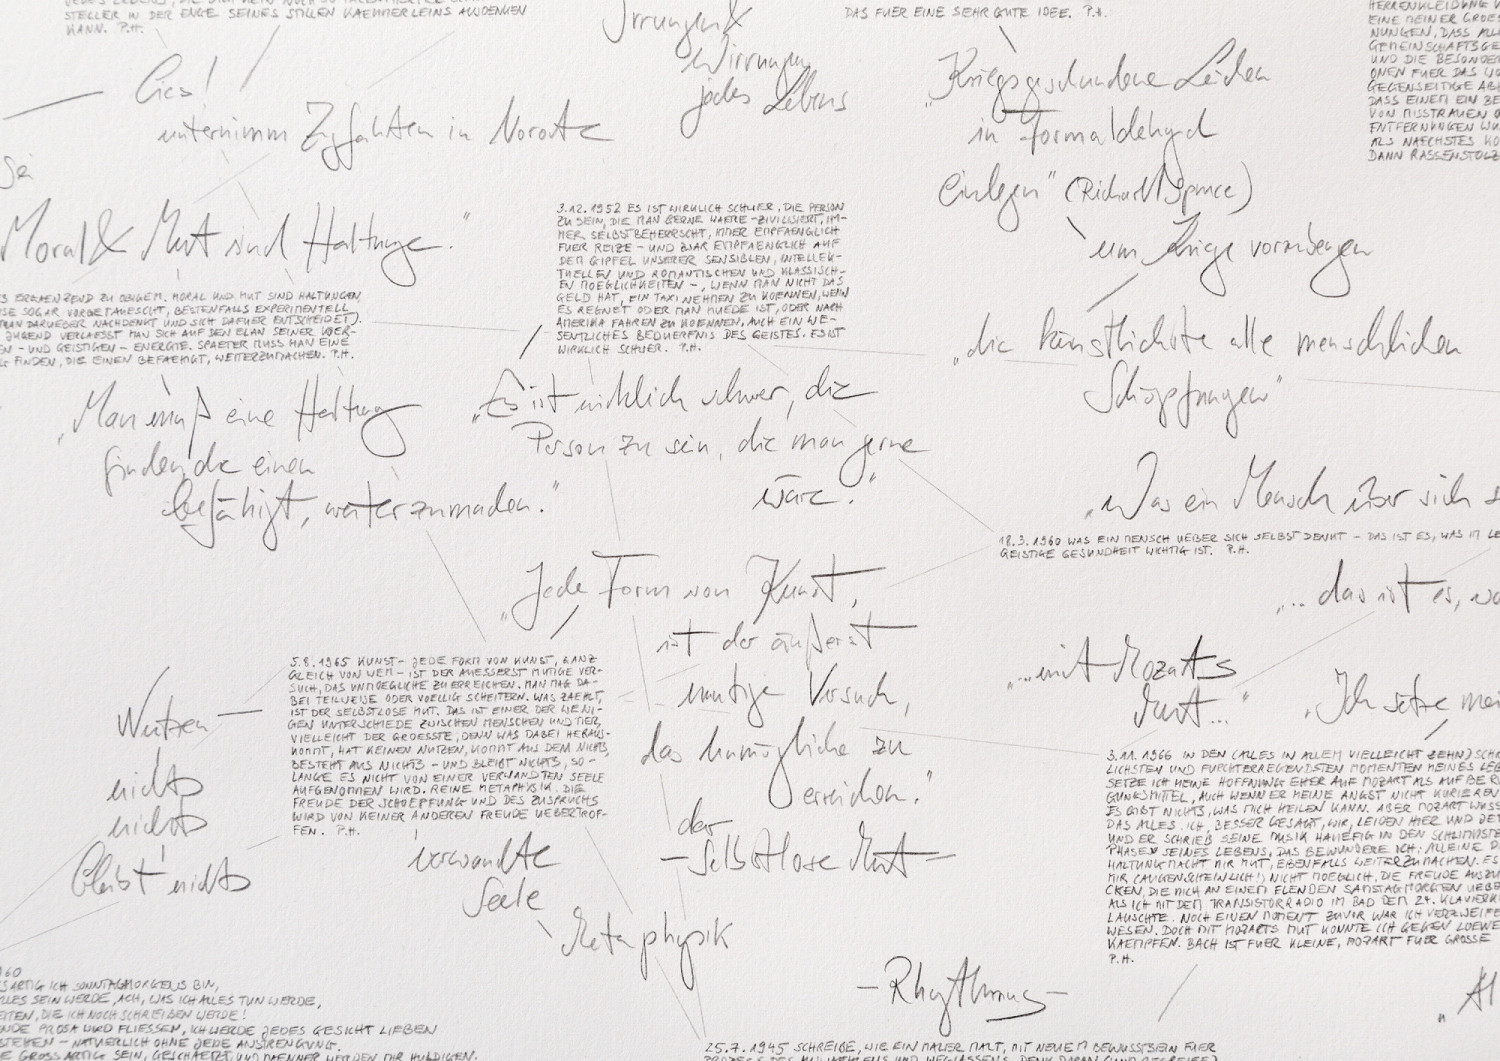 STELLER IN DER ENGE SEINES STILLEN KAEMMERLEINS AUSDENKEN
KANN. P.H.
Lies!
unternimm
in
Sei
Moral & Mut sind Haltungen."
ERGAENZEND ZU OBIGEM. MORAL UND MUT SIND HALTUNGEN,
SOGAR VORGETAEUSCHT, BESTENFALLS EXPERIMENTELL
MAN DARUEBER NACHDENKT UND SICH DAFUER ENTSCHEIDET).
JUGEND VERLAESST MAN SICH AUF DEN ELAN SEINER KOER-
EN - UND GEISTIGEN - ENERGIE. SPAETER MUSS MAN EINE
FINDEN, DIE EINEN BEFAEHIGT, WEITERZUMACHEN. P.H.
„Man muß eine Haltung
finden, die einen
befähigt, weiterzumachen."
Irrungen &
Wirrungen
jedes Lebens
3.12.1952 ES IST WIRKLICH SCHWER, DIE PERSON
ZU SEIN, DIE MAN GERNE WAERE - ZIVILISIERT, IM-
MER SELBSTBEHERRSCHT, IMMER EMPFAENGLICH
FUER REIZE - UND ZWAR EMPFAENGLICH AUF
DEM GIPFEL UNSERER SENSIBLEN, INTELLEK-
TUELLEN UND ROMANTISCHEN UND KLASSISCH-
EN MOEGLICHKEITEN -, WENN MAN NICHT DAS
GELD HAT, EIN TAXI NEHMEN ZU KOENNEN, WENN
ES REGNET ODER MAN MUEDE IST, ODER NACH
AMERIKA FAHREN ZU KOENNEN, AUCH EIN WE-
SENTLICHES BEDUERFNIS DES GEISTES. ES IST
WIRKLICH SCHWER. P.H.
„Es ist wirklich schwer, die
Person zu sein, die man gerne
wäre."
DAS FUER EINE SEHR GUTE IDEE. P.H.
„Kriegsgeschundene Leichen
in Formaldehyd
einlegen" (Richard Spruce)
um Kriege vorzubeugen
„die künstlichste aller menschlichen
Schöpfungen"
HERRENKLEIDUNG
EINE MEINER GROES
NUNGEN, DASS ALL
GEMEINSCHAFTSGE
UND DIE BESONDER
ONEN FUER DAS WO
GEGENSEITIGE AB
DASS EINEM EIN BE
VON MISSTRAUEN O
ENTFERNUNGEN WU
ALS NAECHSTES KO
DANN RASSENSTOLZ
„Was ein Mensch über sich s
18.3.1960 WAS EIN MENSCH UEBER SICH SELBST DENKT - DAS IST ES, WAS IM LE
GEISTIGE GESUNDHEIT WICHTIG IST. P.H.
„... das ist es, wa
„Jede Form von Kunst,
ist der äußerst
mutige Versuch,
das Unmögliche zu
erreichen."
5.8.1965 KUNST - JEDE FORM VON KUNST, GANZ
GLEICH VON WEM - IST DER AUESSERST MUTIGE VER-
SUCH, DAS UNMOEGLICHE ZU ERREICHEN. MAN MAG DA-
BEI TEILWEISE ODER VOELLIG SCHEITERN. WAS ZAEHLT,
IST DER SELBSTLOSE MUT. DAS IST EINER DER WENI-
GEN UNTERSCHIEDE ZWISCHEN MENSCHEN UND TIER,
VIELLEICHT DER GROESSTE, DENN WAS DABEI HERAUS-
KOMMT, HAT KEINEN NUTZEN, KOMMT AUS DEM NICHTS,
BESTEHT AUS NICHTS - UND BLEIBT NICHTS, SO-
LANGE ES NICHT VON EINER VERWANDTEN SEELE
AUFGENOMMEN WIRD. REINE METAPHYSIK. DIE
FREUDE DER SCHOEPFUNG UND DES ZUSPRUCHS
WIRD VON KEINER ANDEREN FREUDE UEBERTROF-
FEN. P.H.
nichts
nichts
bleibt nichts
verwandte
Seele
der
- selbstlose Mut -
Metaphysik
- Rhythmus -
„...mit Mozarts
Mut..."
„Ich setze mei
3.11.1966 IN DEN (ALLES IN ALLEM VIELLEICHT ZEHN) SCHR
LICHSTEN UND FURCHTERREGENDSTEN MOMENTEN MEINES LEB
SETZE ICH MEINE HOFFNUNG EHER AUF MOZART ALS AUF BERU
GUNGSMITTEL, AUCH WENN ER MEINE ANGST NICHT KURIEREN
ES GIBT NICHTS, WAS MICH HEILEN KANN. ABER MOZART WUSS
DAS ALLES. ICH, BESSER GESAGT, WIR, LEIDEN HIER UND JET
UND ER SCHRIEB SEINE MUSIK HAUEFIG IN DEN SCHLIMMSTE
PHASEN SEINES LEBENS, DAS BEWUNDERE ICH; ALLEINE DI
HALTUNG MACHT MIR MUT, EBENFALLS WEITERZUMACHEN. ES
MIR (AUGENSCHEINLICH!) NICHT MOEGLICH, DIE FREUDE AUSZU
CKEN, DIE MICH AN EINEM ELENDEN SAMSTAGMORGEN UEBE
ALS ICH MIT DEM TRANSISTORRADIO IM BAD DEM 24. KLAVIERK
LAUSCHTE. NOCH EINEN MOMENT ZUVOR WAR ICH VERZWEIFE
WESEN. DOCH MIT MOZARTS MUT KONNTE ICH GEGEN LOEWE
KAEMPFEN. BACH IST FUER KLEINE, MOZART FUER GROSSE
P.H.
960
SARTIG ICH SONNTAGMORGENS BIN,
LLES SEIN WERDE, ACH, WAS ICH ALLES TUN WERDE,
EITEN, DIE ICH NOCH SCHREIBEN WERDE!
NDE PROSA UND FLIESSEN, ICH WERDE JEDES GESICHT LIEBEN
STEHEN - NATUERLICH OHNE JEDE ANSTRENGUNG.
E GROSSARTIG SEIN, GESCHAETZT, UND MAENNER WERDEN MIR HULDIGEN.
25.7.1945 SCHREIBE, WIE EIN MALER MALT, MIT NEUEM BEWUSSTSEIN FUER